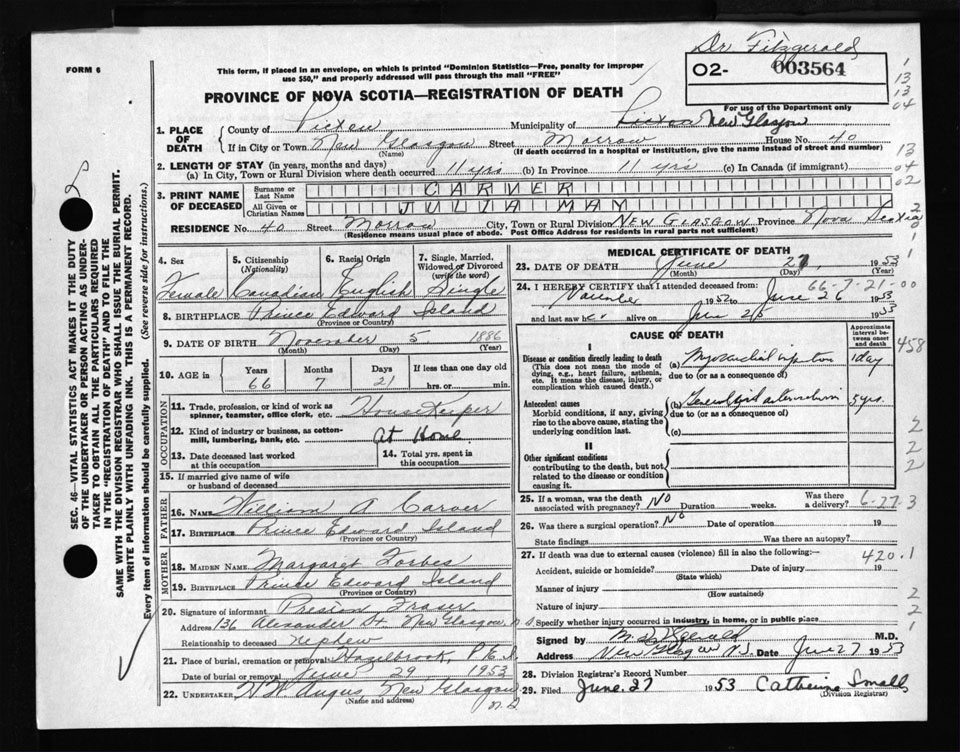 Dr Fitzgerald
FORM 6
This form, if placed in an envelope, on which is printed "Dominion Statistics—Free, penalty for improper
use $50," and properly addressed will pass through the mail "FREE"
O2- 003564
PROVINCE OF NOVA SCOTIA—REGISTRATION OF DEATH
For use of the Department only
1. PLACE OF DEATH
County of Pictou Municipality of Pictou New Glasgow
If in City or Town New Glasgow Street Morrow House No. 40
(Name) (If death occurred in a hospital or institution, give the name instead of street and number)
2. LENGTH OF STAY (in years, months and days)
(a) In City, Town or Rural Division where death occurred 11 yrs (b) In Province 11 yrs (c) In Canada (if immigrant)
3. PRINT NAME OF DECEASED
Surname or Last Name CARVER
All Given or Christian Names JULIA MAY
RESIDENCE No. 40 Street Morrow City, Town or Rural Division NEW GLASGOW Province Nova Scotia
(Residence means usual place of abode. Post Office Address for residents in rural parts not sufficient)
4. Sex Female
5. Citizenship (Nationality) Canadian
6. Racial Origin English
7. Single, Married, Widowed or Divorced (write the word) Single
8. BIRTHPLACE Prince Edward Island
(Province or Country)
9. DATE OF BIRTH November 5 1886
(Month) (Day) (Year)
10. AGE in Years 66 Months 7 Days 21 If less than one day old hrs. or min.
OCCUPATION
11. Trade, profession, or kind of work as spinner, teamster, office clerk, etc. HouseKeeper
12. Kind of industry or business, as cotton-mill, lumbering, bank, etc. At Home
13. Date deceased last worked at this occupation
14. Total yrs. spent in this occupation
15. If married give name of wife or husband of deceased
FATHER
16. NAME William A Carver
17. BIRTHPLACE Prince Edward Island
(Province or Country)
MOTHER
18. MAIDEN NAME Margaret Forbes
19. BIRTHPLACE Prince Edward Island
(Province or Country)
20. Signature of informant Preston Fraser
Address 136 Alexander St. New Glasgow, N S
Relationship to deceased nephew
21. Place of burial, cremation or removal Hazelbrook, P.E.I
Date of burial or removal June 29 1953
22. UNDERTAKER, H.H. Angus New Glasgow
(Name and address) N.S
MEDICAL CERTIFICATE OF DEATH
23. DATE OF DEATH June 27, 1953
(Month) (Day) (Year)
66-7-21-00
24. I HEREBY CERTIFY that I attended deceased from:
November 1952 to June 26 1953
and last saw her alive on June 25 1953
CAUSE OF DEATH
Approximate interval between onset and death
I
Disease or condition directly leading to death
(This does not mean the mode of dying, e.g., heart failure, asthenia, etc. It means the disease, injury, or complication which caused death.)
(a) Myocardial infarction 1 day
due to (or as a consequence of)
Antecedent causes
Morbid conditions, if any, giving rise to the above cause, stating the underlying condition last.
(b) Generalized arteriosclerosis 5 yrs.
due to (or as a consequence of)
(c)
II
Other significant conditions
contributing to the death, but not related to the disease or condition causing it.
25. If a woman, was the death associated with pregnancy? NO Duration weeks. Was there a delivery? 6-27-3
26. Was there a surgical operation? No Date of operation 19
State findings Was there an autopsy?
27. If death was due to external causes (violence) fill in also the following:— 420.1
Accident, suicide or homicide? Date of injury 19
(State which)
Manner of injury
(How sustained)
Nature of injury
Specify whether injury occurred in industry, in home, or in public place
Signed by M.D.
Address New Glasgow N.S. Date June 27 1953
28. Division Registrar's Record Number
29. Filed June 27 1953 Catherine Small
(Division Registrar)
SEC. 46—VITAL STATISTICS ACT MAKES IT THE DUTY
OF THE UNDERTAKER OR PERSON ACTING AS UNDER-
TAKER TO OBTAIN ALL THE PARTICULARS REQUIRED
IN THE "REGISTRATION OF DEATH" AND TO FILE THE
SAME WITH THE DIVISION REGISTRAR WHO SHALL ISSUE THE BURIAL PERMIT.
WRITE PLAINLY WITH UNFADING INK. THIS IS A PERMANENT RECORD.
Every item of information should be carefully supplied. (See reverse side for instructions.)
1
13
13
04
13
04
02
2
0
1
458
2
2
2
2
2
1